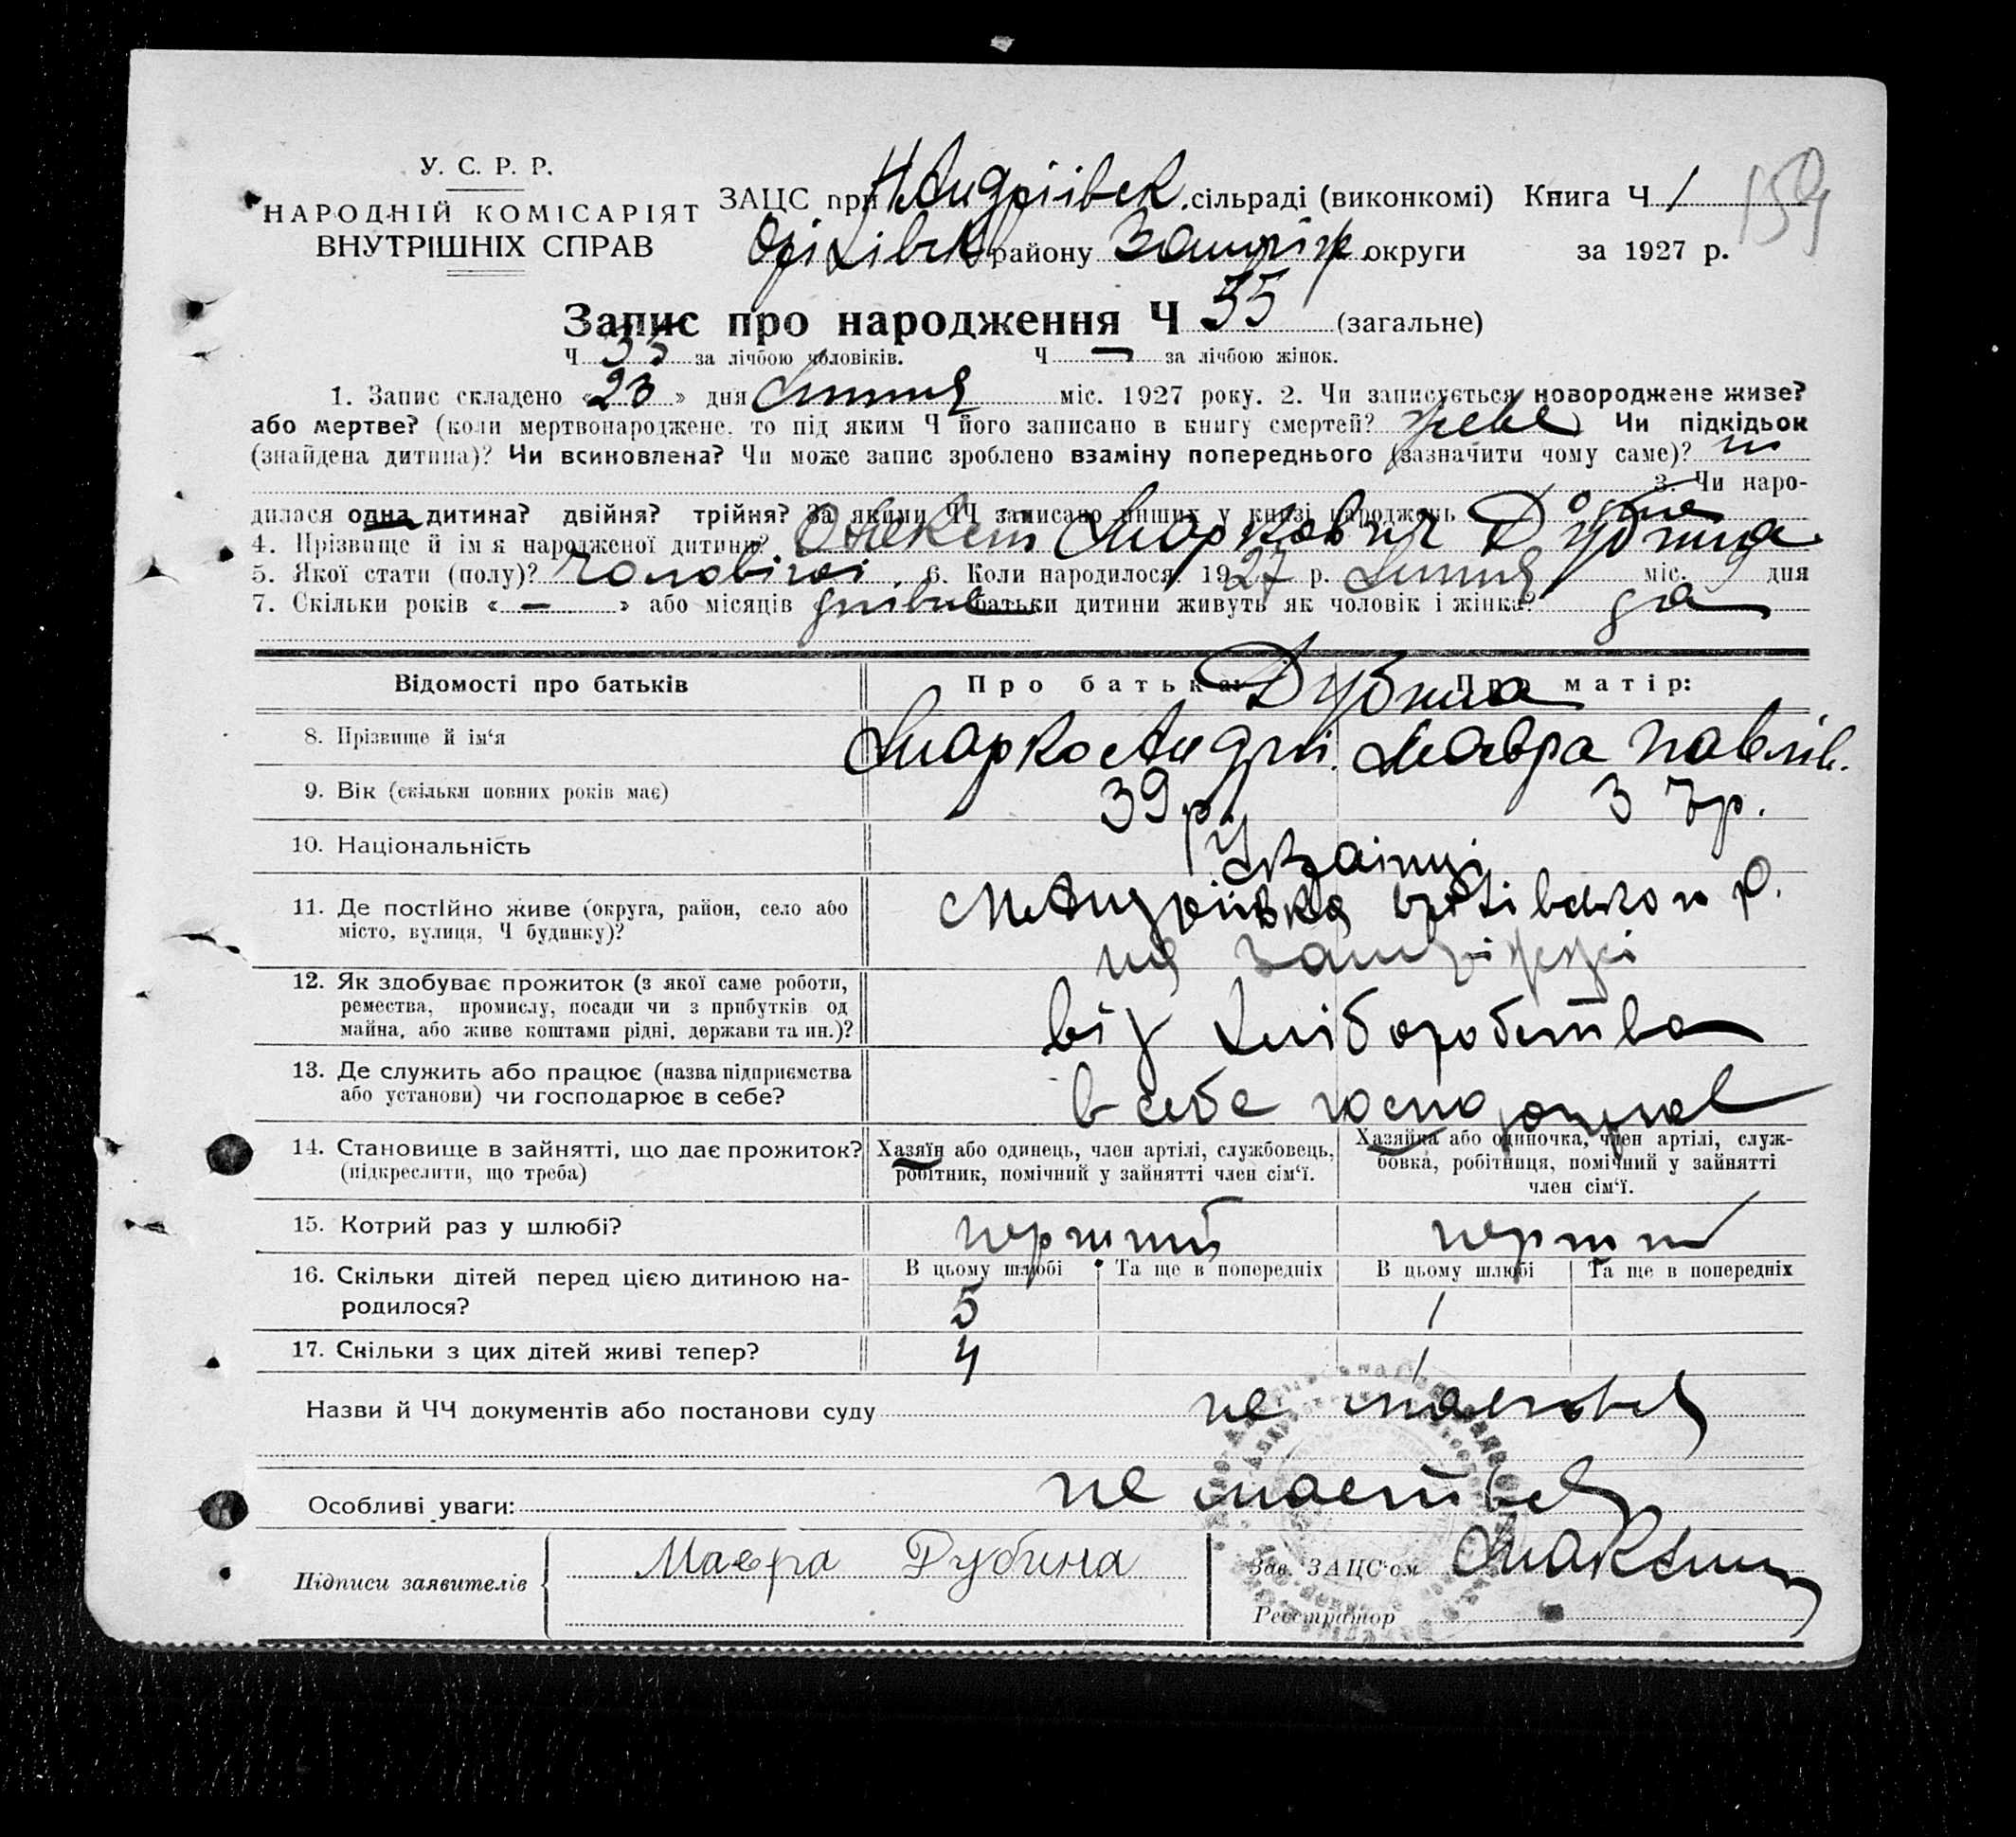 У. С. Р. Р.
НАРОДНІЙ КОМІСАРІЯТ
ВНУТРІШНІХ СПРАВ
159
ЗАЦС при Н Андріівск. сільраді (виконкомі) Книга Ч 1
району Запоріж округи за 1927 р.
Запис про народження Ч 55 (загальне)
Ч 35 за лічбою чоловіків. Ч — за лічбою жінок.
1. Запис складено «23» дня Липня міс. 1927 року. 2. Чи записується новороджене живе?
або мертве? (коли мертвонароджене, то під яким Ч його записано в книгу смертей? живе) Чи підкідьок
(знайдена дитина)? Чи всиновлена? Чи може запис зроблено взаміну попереднього (зазначити чому саме)?
3. Чи наро-
дилася одна дитина? двійня? трійня? За якими ЧЧ записано инших у книзі народжень
4. Прізвище й ім'я народженої дитини? Маркович Дубина
5. Якої стати (полу)? 6. Коли народилося? 1927 р. Липня міс. 9 дня
7. Скільки років « — » або місяців батьки дитини живуть як чоловік і жінка? да
Відомості про батьків Про батька: Про матір:
Дубина
8. Прізвище й ім'я Марко Андрі. Мавра Павлів.
9. Вік (скільки повних років має) 39 р. 37 р.
10. Національність Українці
11. Де постійно живе (округа, район, село або
місто, вулиця, Ч будинку)?
на Запоріжжі
12. Як здобуває прожиток (з якої саме роботи,
ремества, промислу, посади чи з прибутків од
майна, або живе коштами рідні, держави та ин.)?
від хліборобства
13. Де служить або працює (назва підприємства
або установи) чи господарює в себе?
в себе господарює
14. Становище в зайнятті, що дає прожиток?
(підкреслити, що треба)
Хазяїн або одинець, член артілі, службовець,
робітник, помічний у зайнятті член сім'ї.
Хазяйка або одиночка, член артілі, служ-
бовка, робітниця, помічний у зайнятті
член сім'ї.
15. Котрий раз у шлюбі? перший перший
16. Скільки дітей перед цією дитиною на-
родилося?
В цьому шлюбі Та ще в попередніх В цьому шлюбі Та ще в попередніх
5 1
17. Скільки з цих дітей живі тепер? 4 1
Назви й ЧЧ документів або постанови суду не
Особливі уваги: не
Підписи заявителів Мавра Дубина
Зав. ЗАЦС'ом
Реєстратор